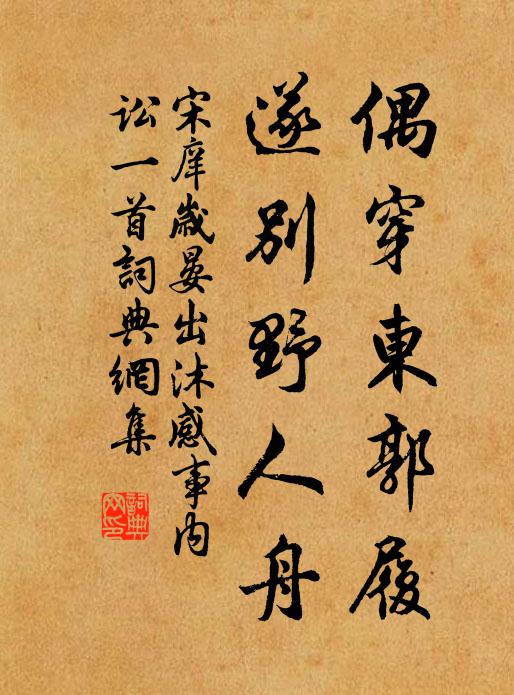 偶穿東郭履
遂別野人舟
宋庠歲晏出沐感事内
訟一首詞典網集
詞典網印